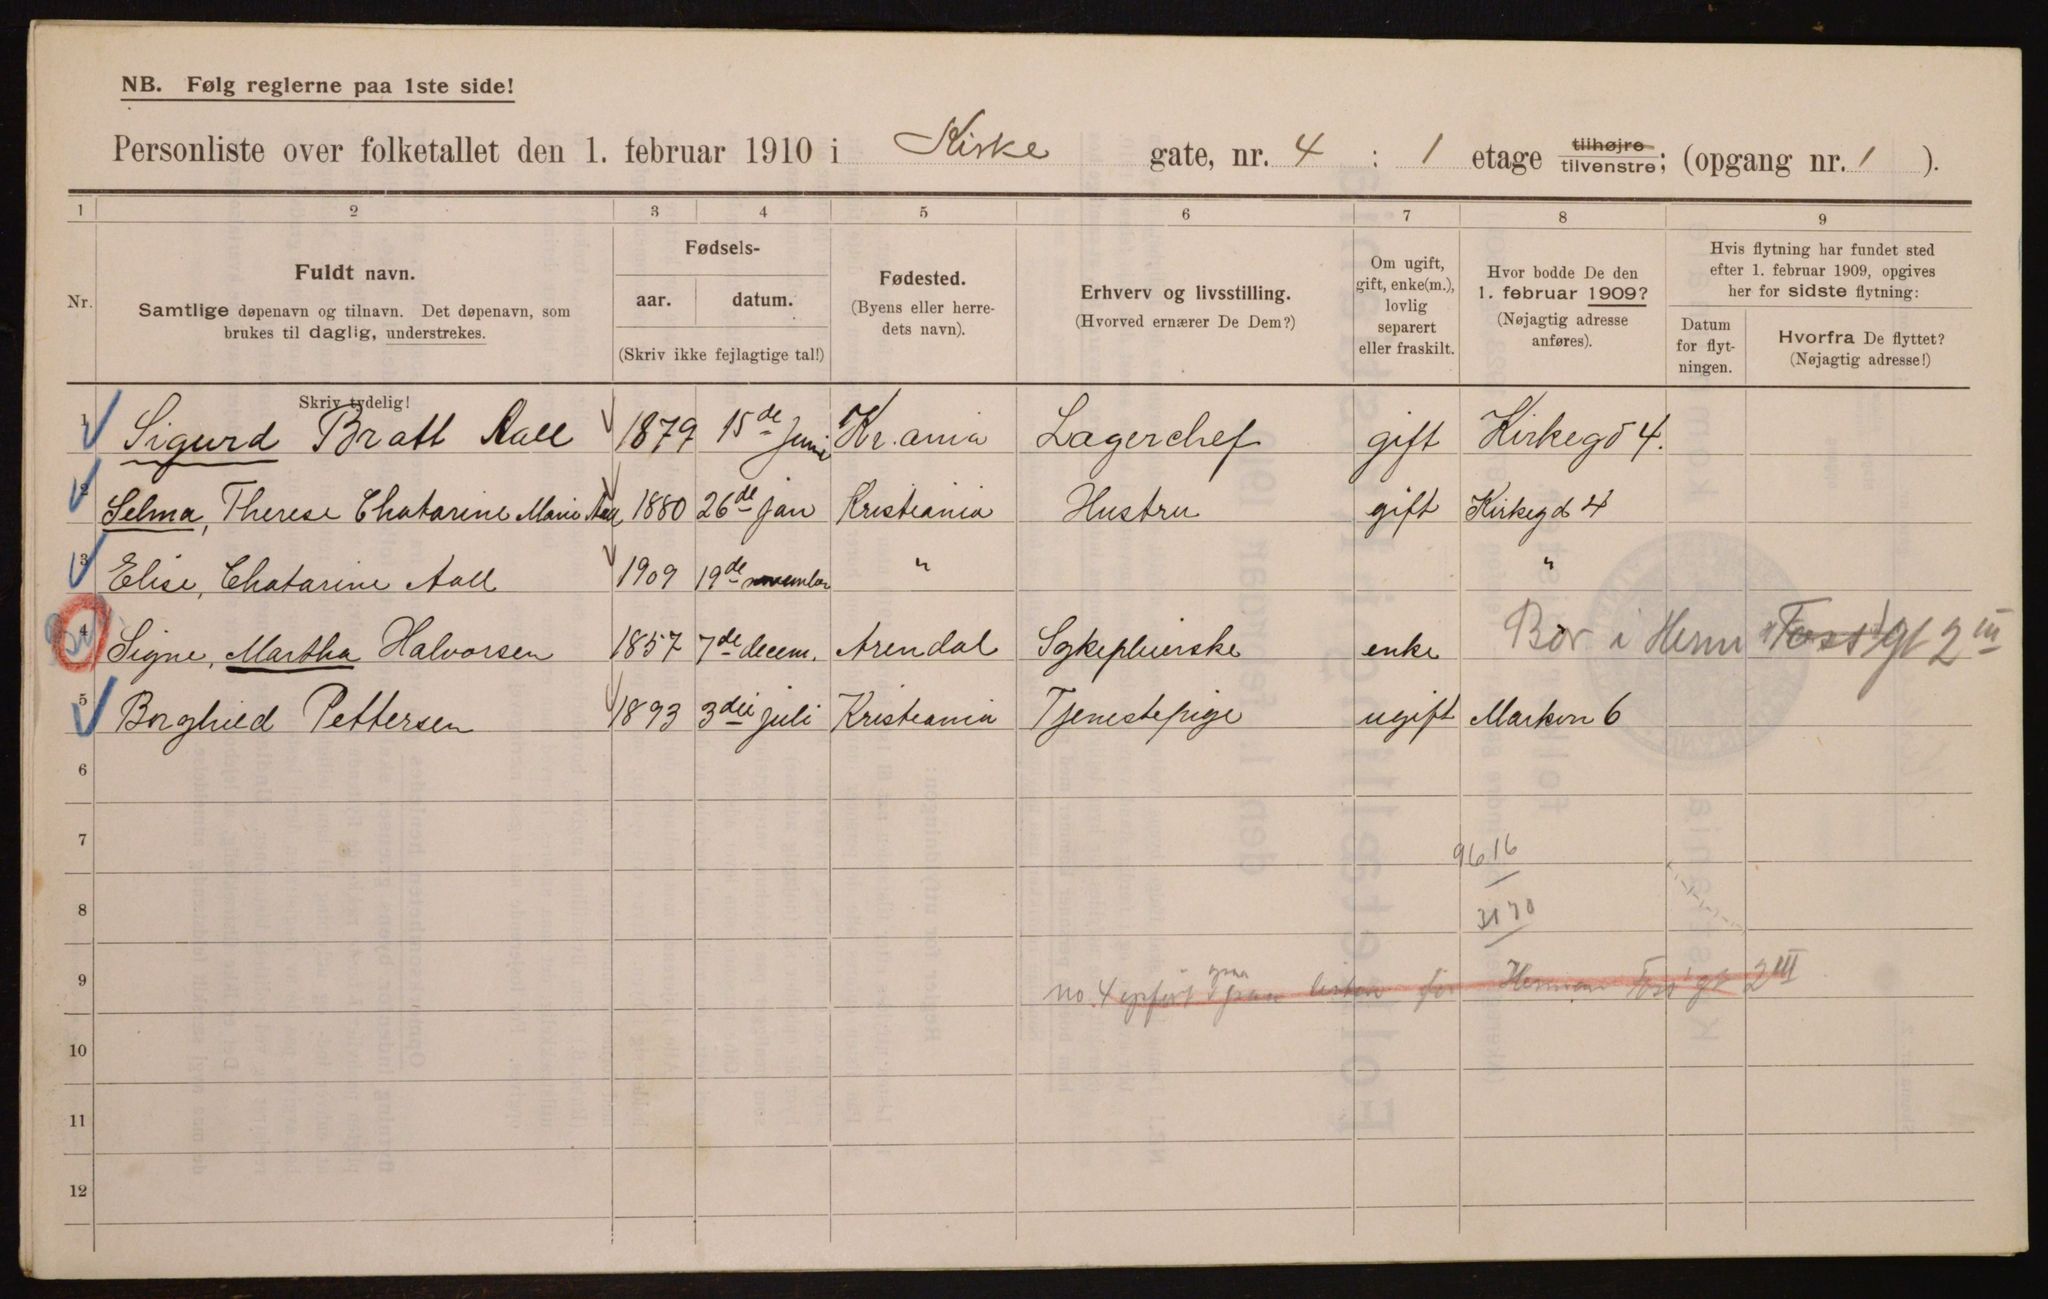 NB. Følg reglerne paa 1ste side!
Personliste over folketallet den 1. februar 1910 i Kirke gate, nr. 4 : 1 etage tilhøjre tilvenstre; (opgang nr. 1 ).
1 2 3 4 5 6 7 8 9
Nr.
Fuldt navn.
Samtlige døpenavn og tilnavn. Det døpenavn, som
brukes til daglig, understrekes.
Skriv tydelig!
Fødsels-
aar. datum.
(Skriv ikke fejlagtige tal!)
Fødested.
(Byens eller herre-
dets navn).
Erhverv og livsstilling.
(Hvorved ernærer De Dem?)
Om ugift,
gift, enke(m.),
lovlig
separert
eller fraskilt.
Hvor bodde De den
1. februar 1909?
(Nøjagtig adresse
anføres).
Hvis flytning har fundet sted
efter 1. februar 1909, opgives
her for sidste flytning:
Datum
for flyt-
ningen.
Hvorfra De flyttet?
(Nøjagtig adresse!)
1 Sigurd Bratt Aall 1879 15de juni Kr.ania Lagerchef gift Kirkegd 4.
2 Selma, Therese Chatarine Marie Aall 1880 26de jan Kristiania Hustru gift Kirkegd 4
3 Elise, Chatarine Aall 1909 19de november " "
4 Signe, Martha Halvorsen 1857 7de decem. Arendal Sykepleierske enke Bor i Herm Foss' gt 2 III
5 Borghild Pettersen 1893 3die juli Kristiania Tjenestepige ugift Markvn 6
6
7
9616
8
3170
9 no. 4 opført paa listen for Hermann Foss' gt 2 III
10
11
12